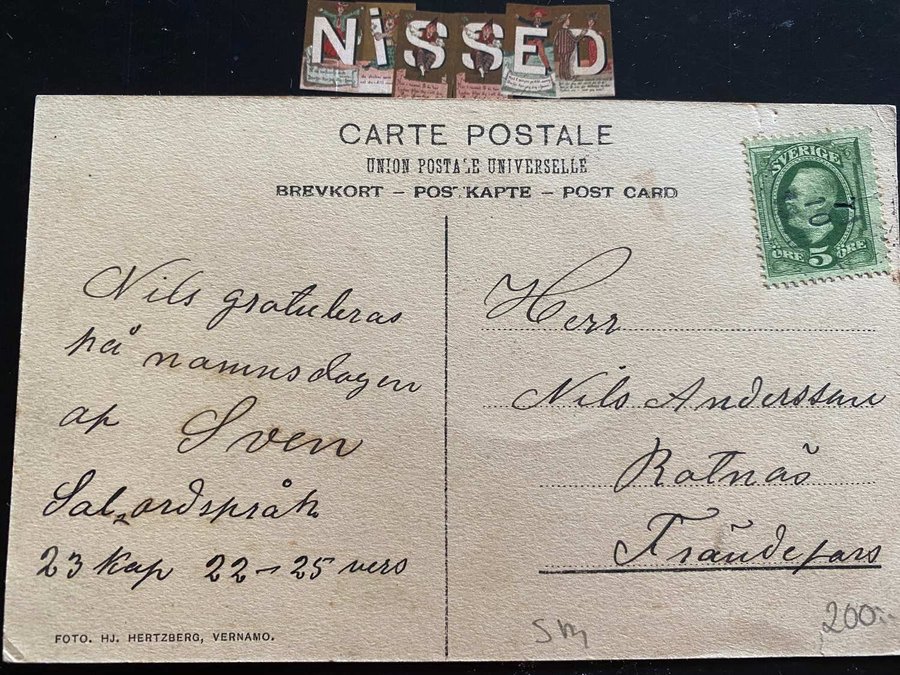 NiSSED
CARTE POSTALE
UNION POSTALE UNIVERSELLE
BREVKORT – POSTKAPTE – POST CARD
SVERIGE
ÖRE 5 ÖRE
Nils gratuleras
på namnsdagen
af Sven
Sal. ordspråk
23 Kap 22–25 vers
Herr
Nils Andersson
Rotnäs
FOTO. HJ. HERTZBERG, VERNAMO.
200:-